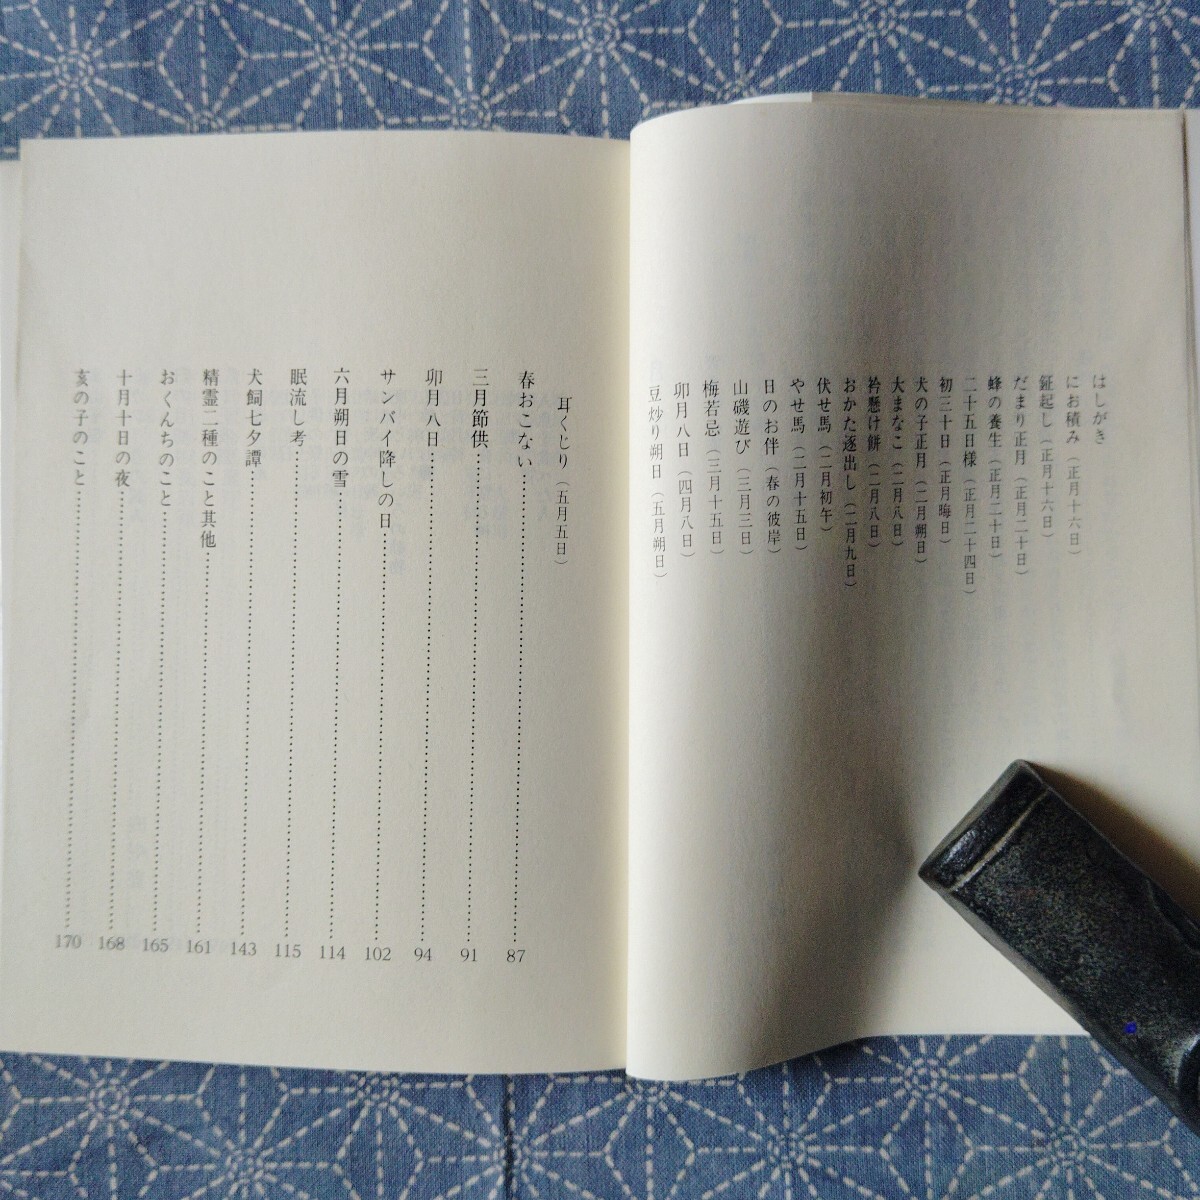 はしがき
にお積み（正月十六日）
鉦起し（正月十六日）
だまり正月（正月二十日）
蜂の養生（正月二十日）
二十五日様（正月二十四日）
初三十日（正月晦日）
犬の子正月（二月朔日）
大まなこ（二月八日）
衿懸け餅（二月八日）
おかた逐出し（二月九日）
伏せ馬（二月初午）
やせ馬（二月十五日）
日のお伴（春の彼岸）
山磯遊び（三月三日）
梅若忌（三月十五日）
卯月八日（四月八日）
豆炒り朔日（五月朔日）
耳くじり（五月五日）
春おこない……87
三月節供……91
卯月八日……94
サンバイ降しの日……102
六月朔日の雪……114
眠流し考……115
犬飼七夕譚……143
精霊二種のこと其他……161
おくんちのこと……165
十月十日の夜……168
亥の子のこと……170